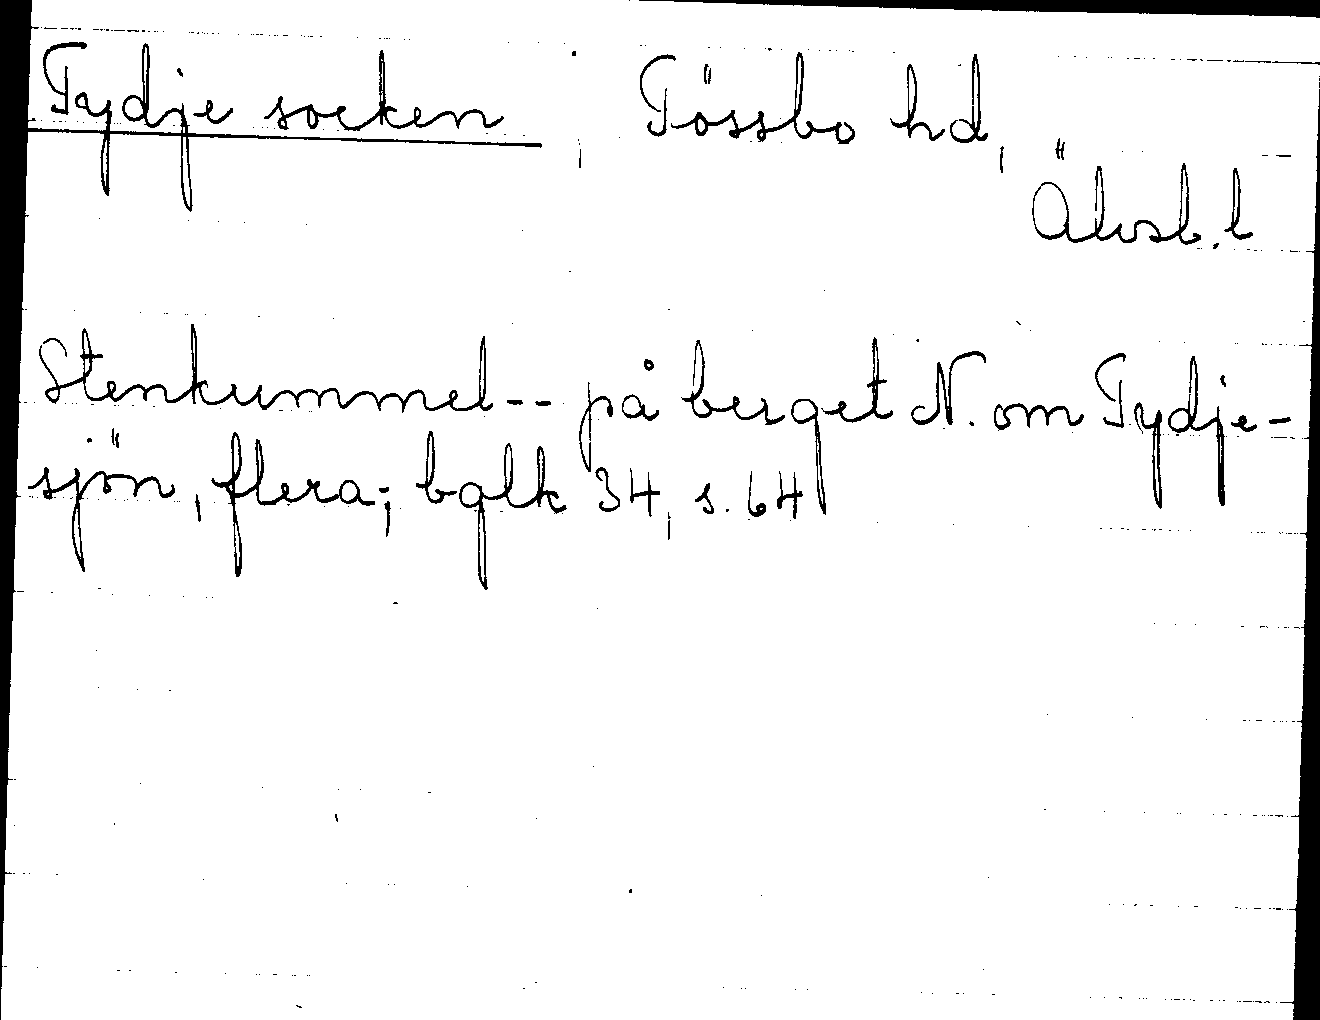 Tydje socken, Tössbo hd,
Älvsb. l
Stenkummel-- på berget N. om Tydje-
sjön, flera; bglk 34, s. 64